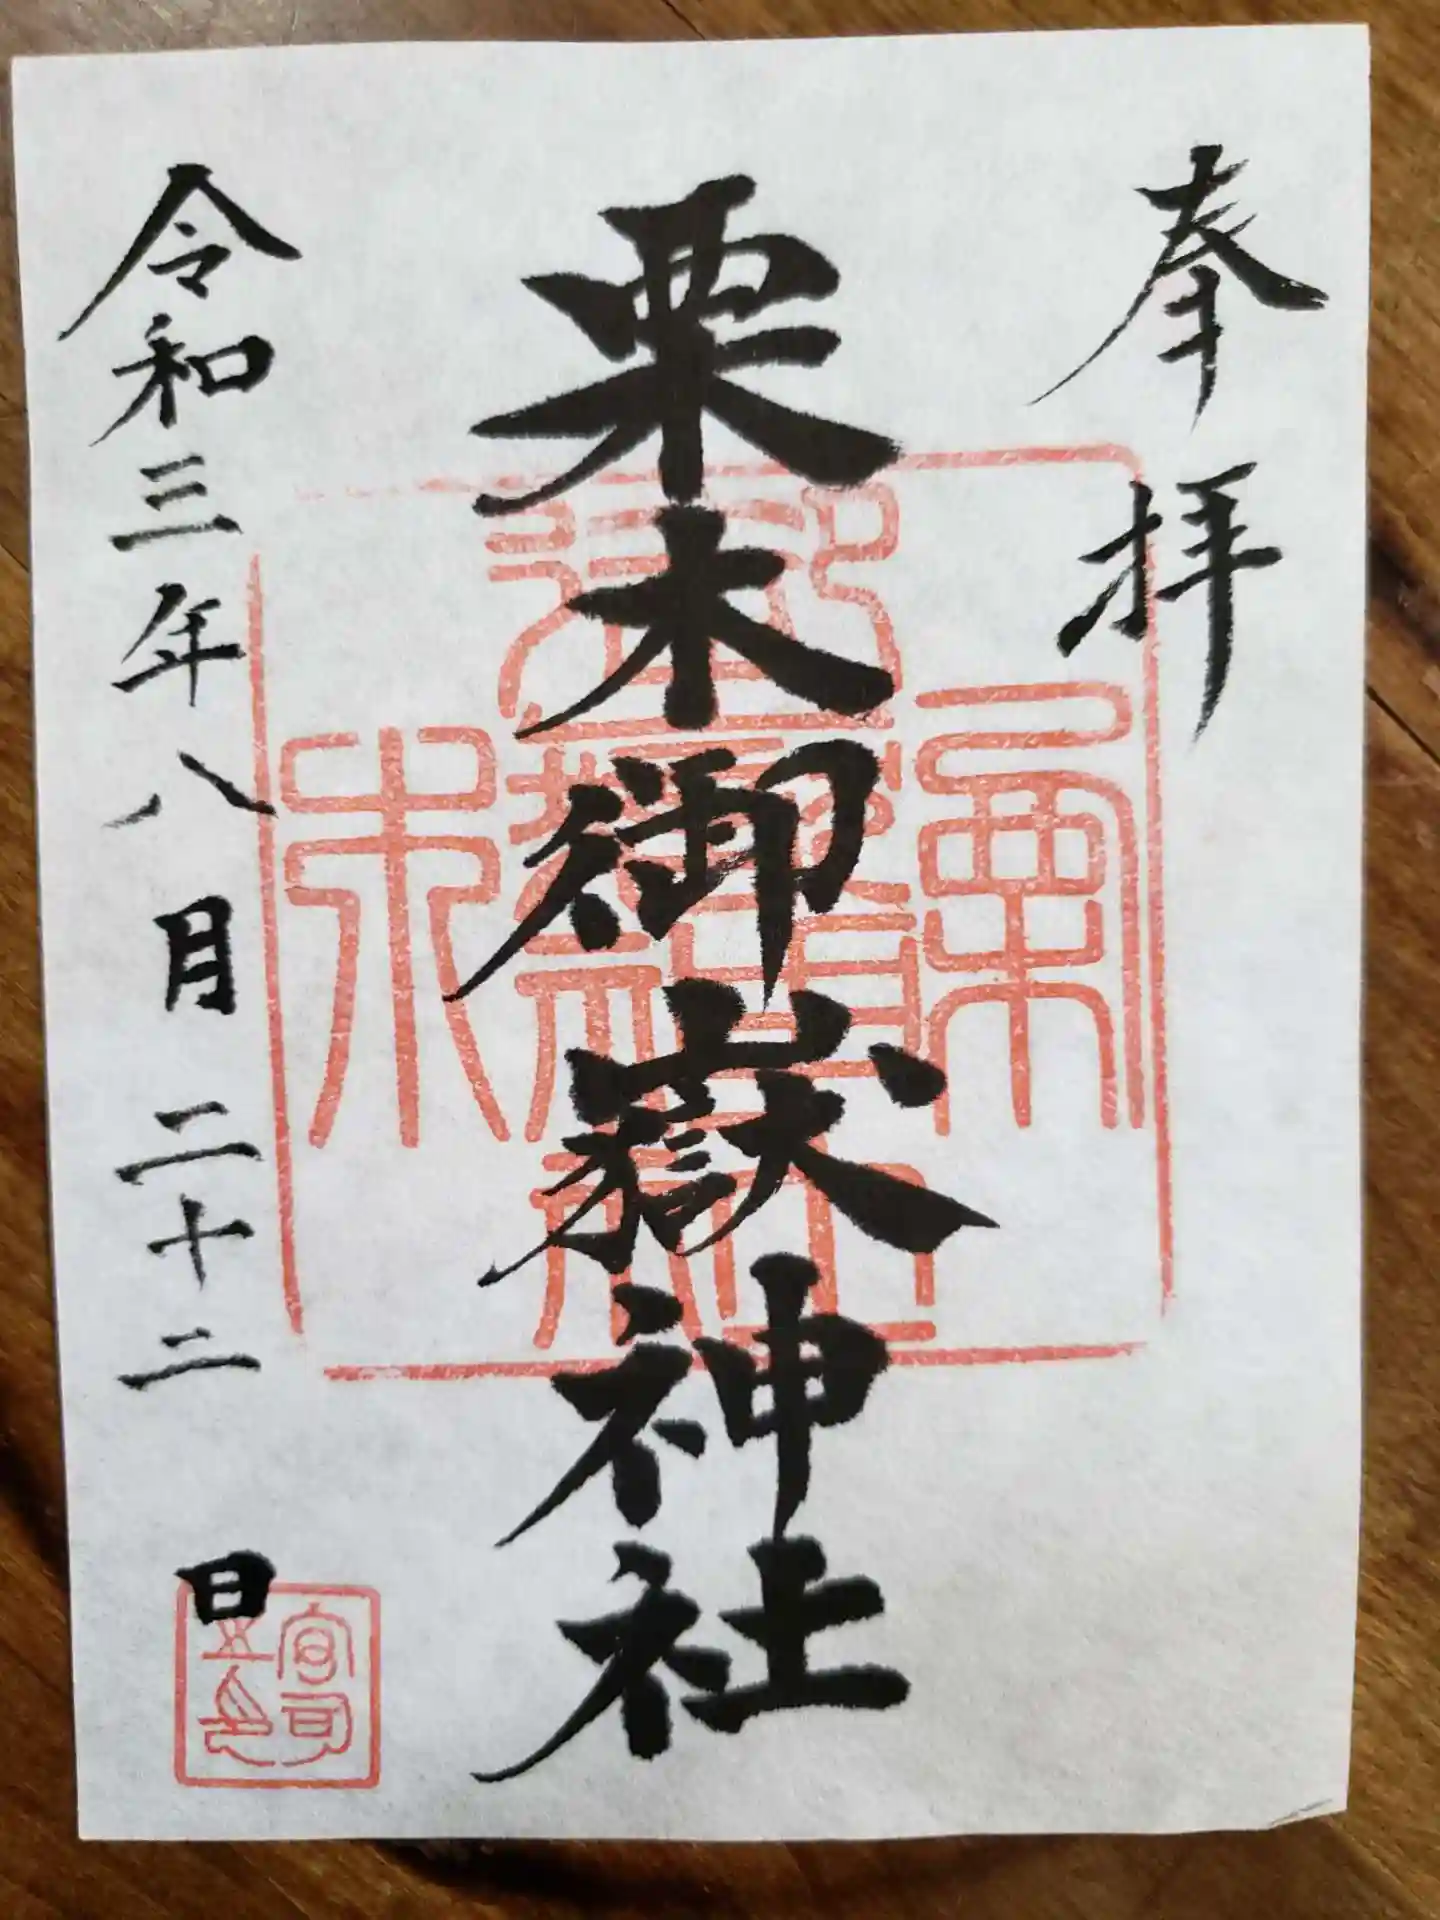 奉拝
栗木御嶽神社
令和三年八月二十二日
宮司